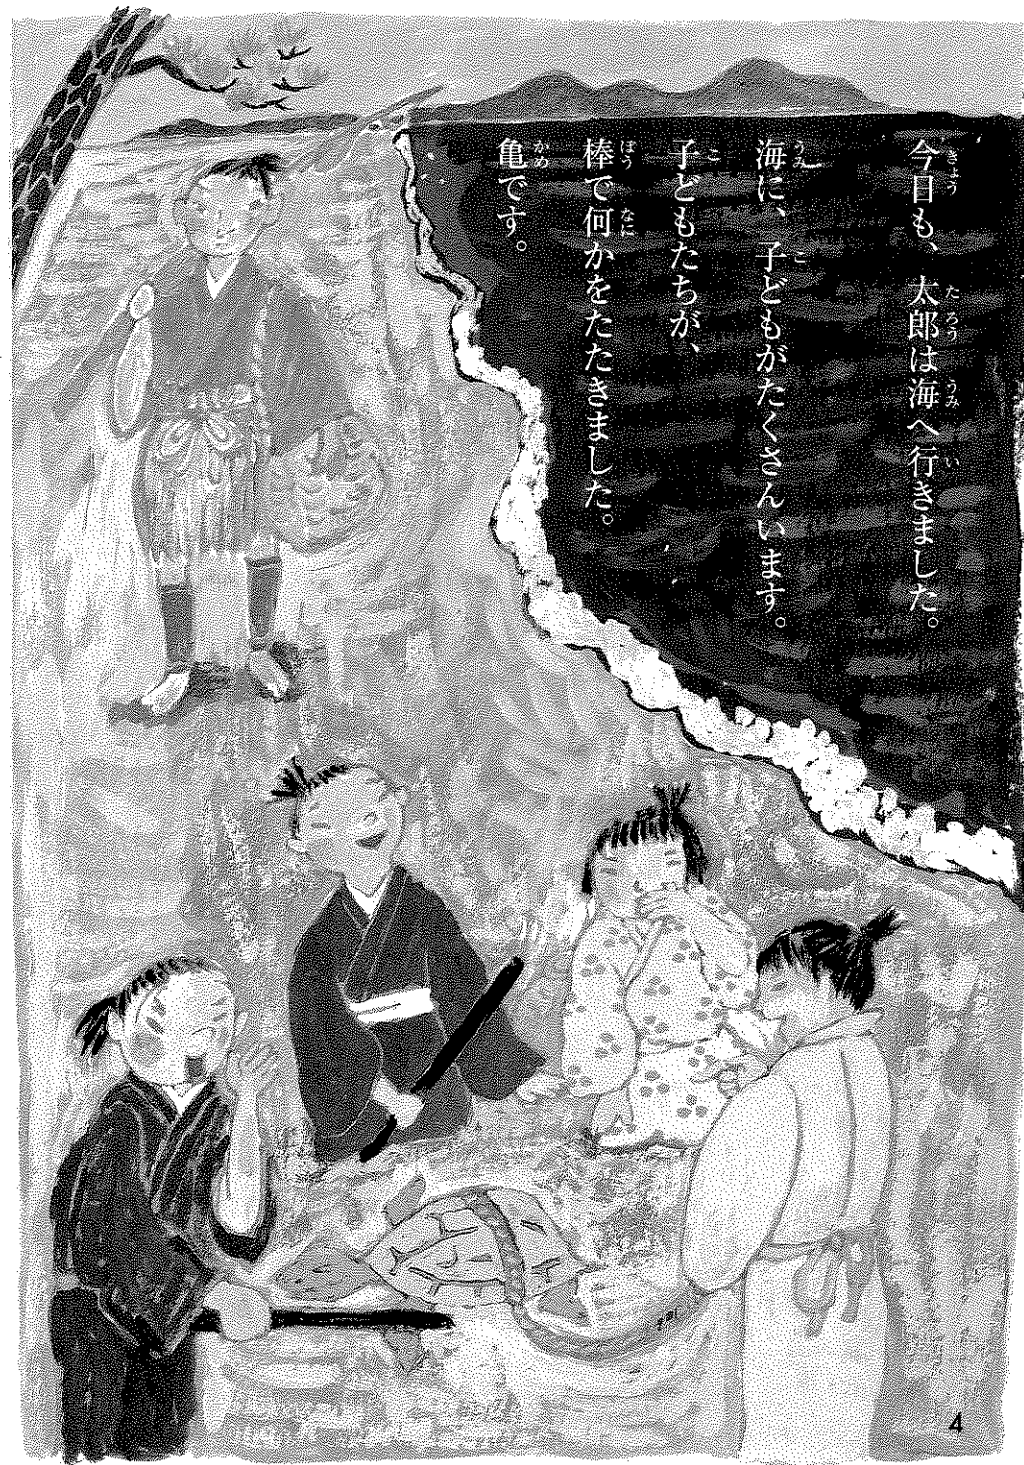 今日も、太郎は海へ行きました。
海に、子どもがたくさんいます。
子どもたちが、
棒で何かをたたきました。
亀です。
4